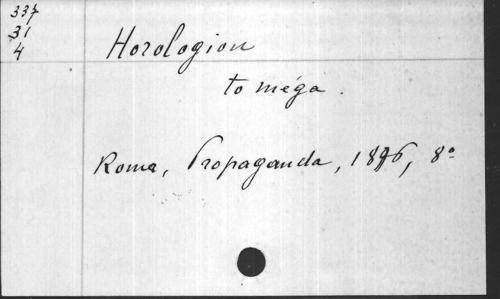 337
31
4
Horologion
to méga.
Roma, Propaganda, 1876, 8º